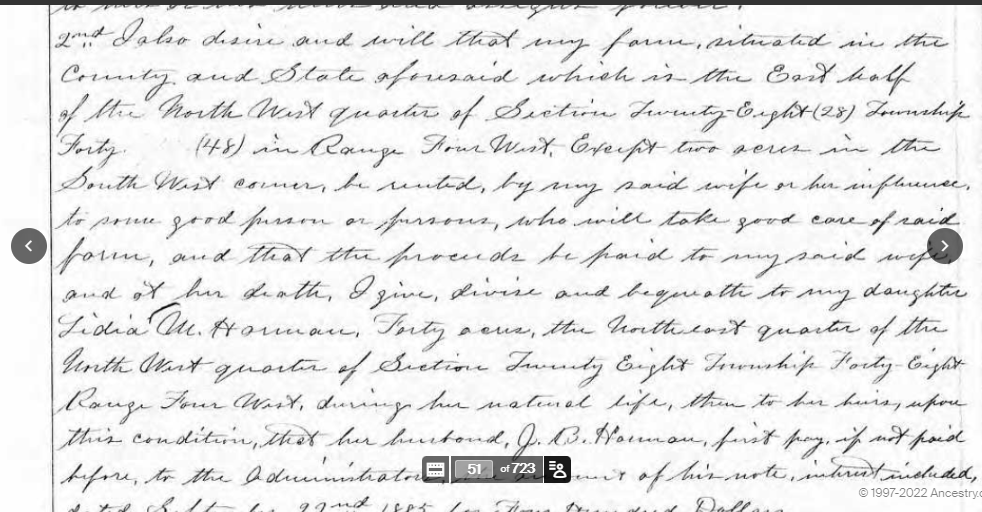 2nd I also desire and will that my farm, situated in the
County and State aforesaid which is the East half
of the North West quarter of Section Twenty-Eight (28) Township
Forty (48) in Range Four West, Except two acres in the
South West corner, be rented, by my said wife or her influence,
to some good person or persons, who will take good care of said
farm, and that the proceeds be paid to my said wife,
and at her death, I give, divise and bequeath to my daughter
Lidia M. Harman, Forty acres, the North east quarter of the
North West quarter of Section Twenty Eight Township Forty-Eight
Range Four West, during her natural life, then to her heirs, upon
this condition, that her husband, J. B. Harman, first pay, if not paid
before, to the Administrator, of his note, interest included,
51 of 723
© 1997-2022 Ancestry.c
22nd 1885 for Four Hundred Dollars